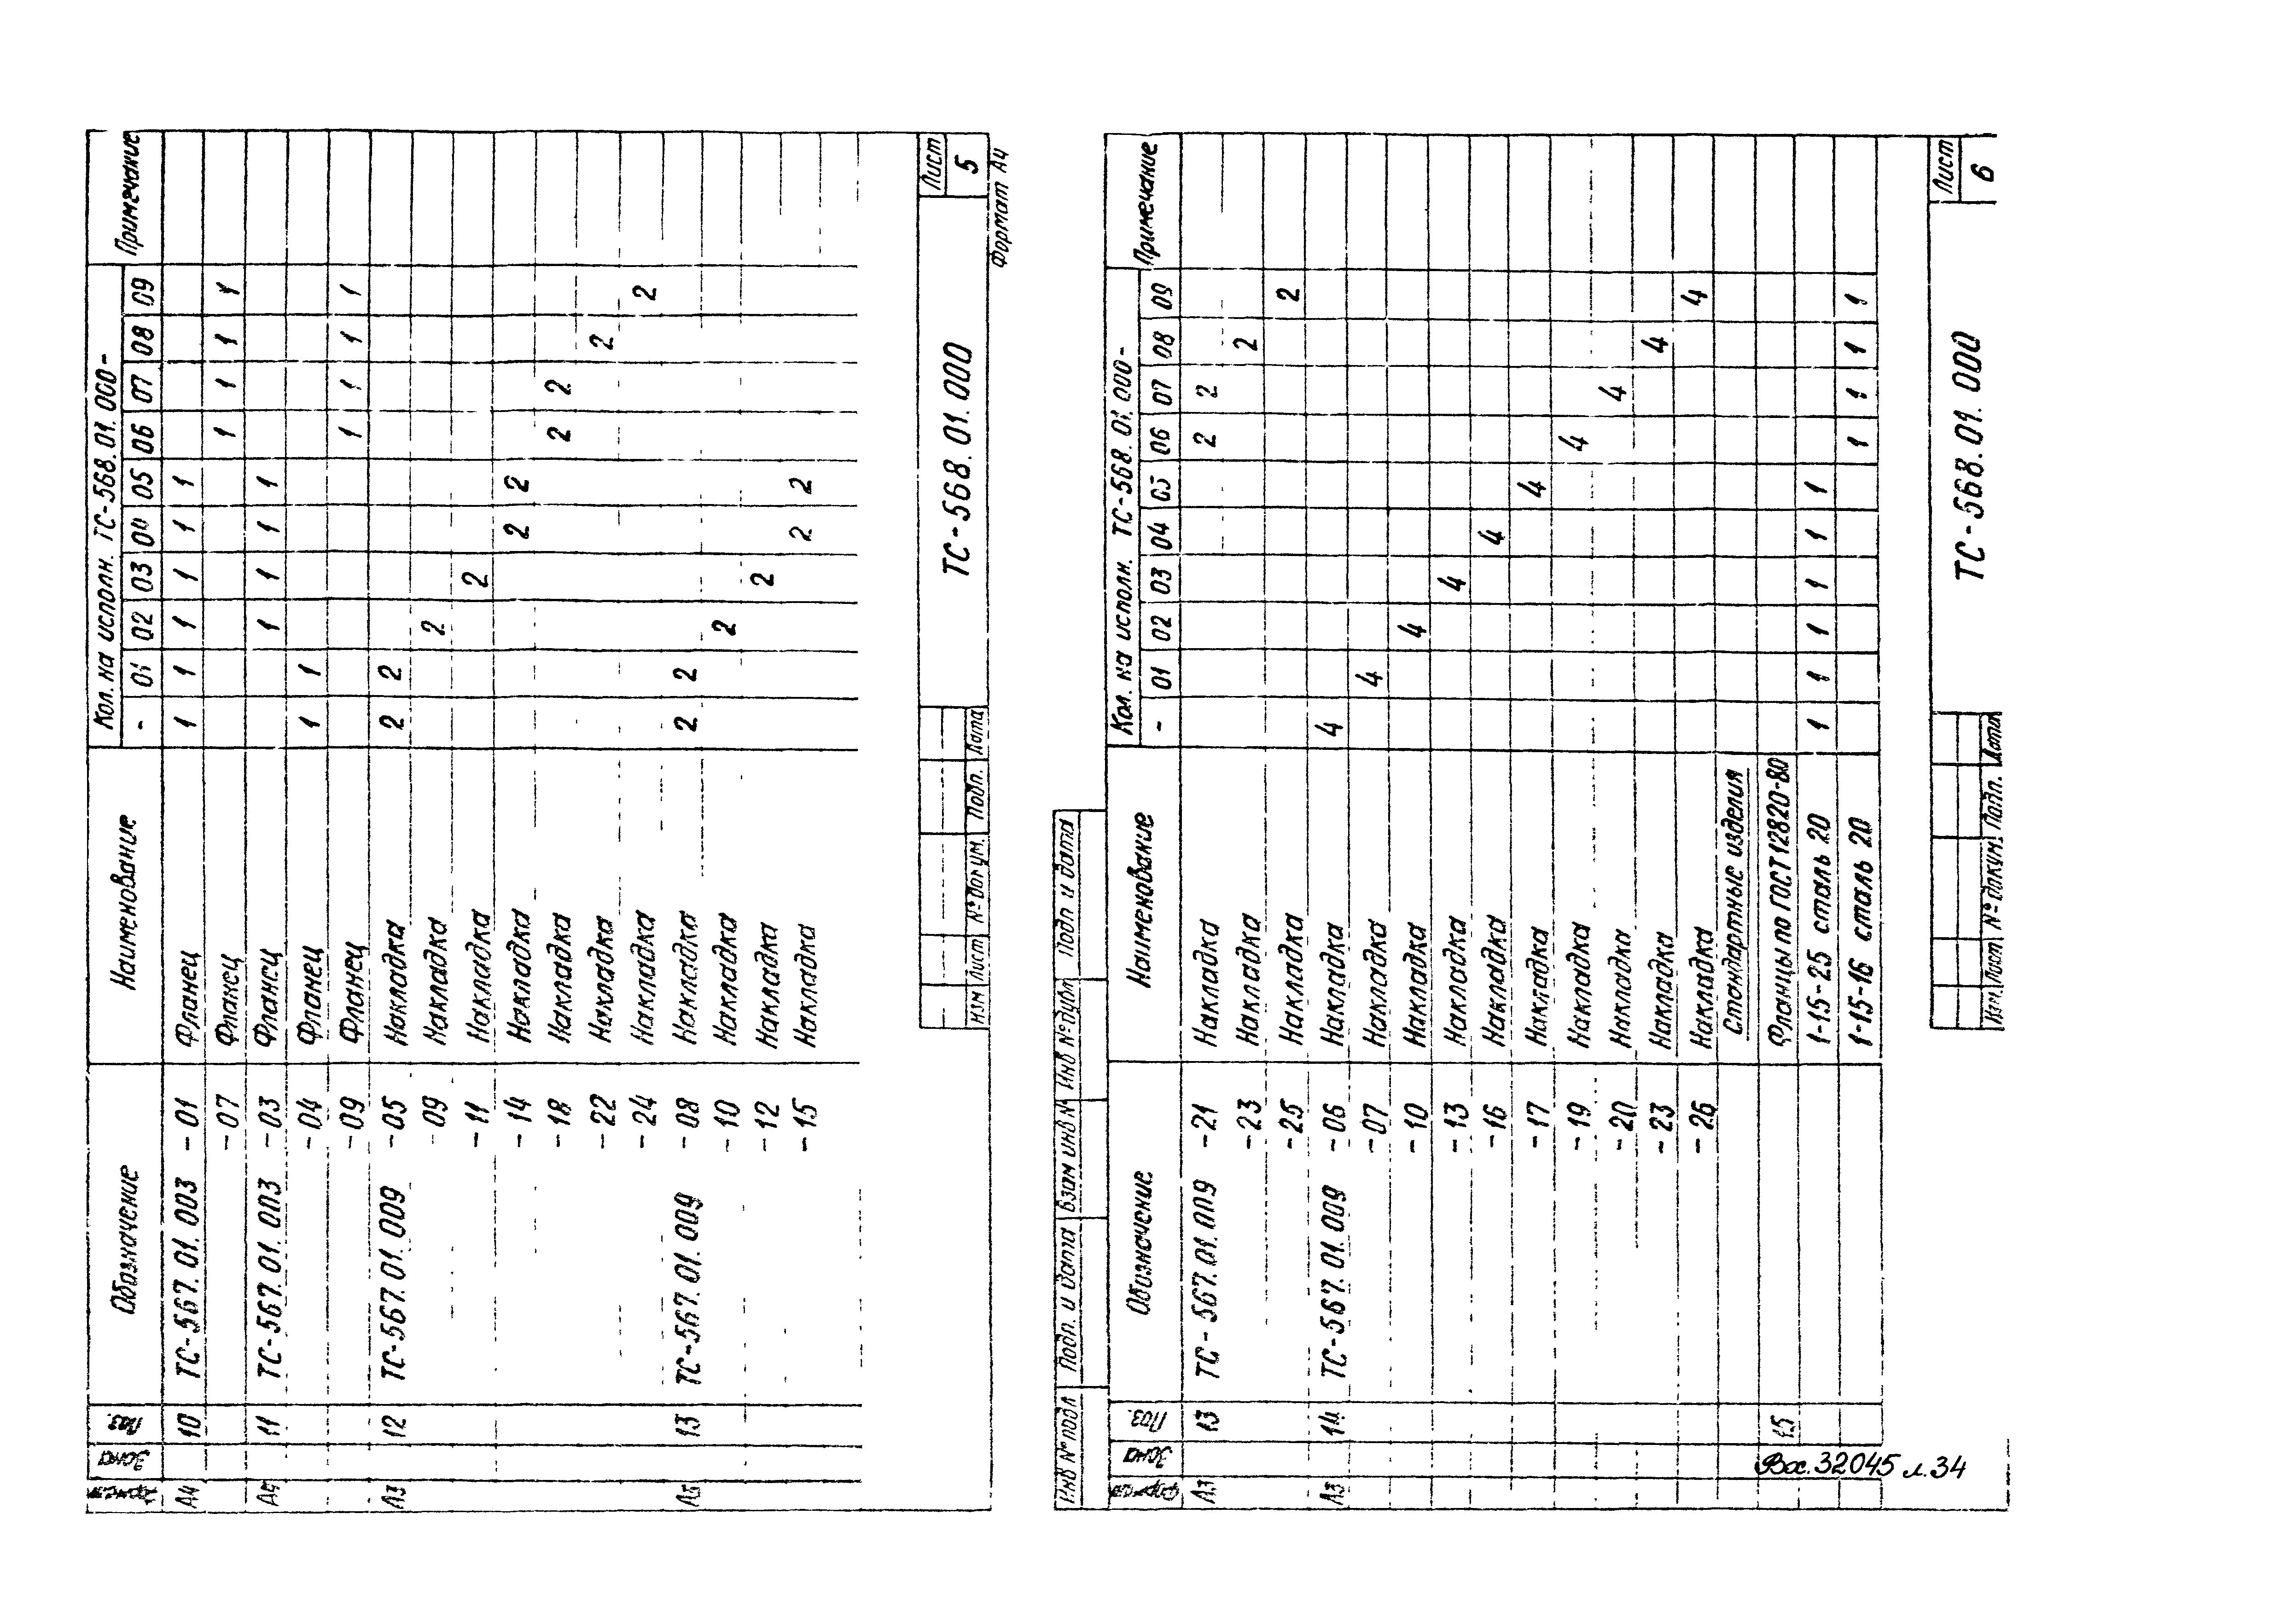 Формат Зона Поз. Обозначение Наименование Кол. на исполн. ТС-568.01.000- Примечание
- 01 02 03 04 05 06 07 08 09
А4 10 ТС-567.01.003 -01 Фланец 1 1 1 1 1 1
-07 Фланец 1 1 1 1
А4 11 ТС-567.01.003 -03 Фланец 1 1 1 1
-04 Фланец 1 1
-09 Фланец 1 1 1 1
А3 12 ТС-567.01.009 -05 Накладка 2 2
-09 Накладка 2
-11 Накладка 2
-14 Накладка 2 2
-18 Накладка 2 2
-22 Накладка 2
-24 Накладка 2
А3 13 ТС-567.01.009 -08 Накладка 2 2
-10 Накладка 2
-12 Накладка 2
-15 Накладка 2 2
Изм Лист № докум. Подп. Дата
ТС-568.01.000
Лист
5
Формат А4
Инв № подл Подп. и дата Взам инв № Инв № дубл Подп и дата
Формат Зона Поз. Обозначение Наименование Кол. на исполн. ТС-568.01.000- Примечание
- 01 02 03 04 05 06 07 08 09
А3 13 ТС-567.01.009 -21 Накладка 2 2
-23 Накладка 2
-25 Накладка 2
А3 14 ТС-567.01.009 -06 Накладка 4
-07 Накладка 4
-10 Накладка 4
-13 Накладка 4
-16 Накладка 4
-17 Накладка 4
-19 Накладка 4
-20 Накладка 4
-23 Накладка 4
-26 Накладка 4
Стандартные изделия
15 Фланцы по ГОСТ 12820-80
1-15-25 сталь 20 1 1 1 1 1 1
1-15-16 сталь 20 1 1 1 1
Изм. Лист № докум. Подп. Дата
ТС-568.01.000
Лист
6
Вос. 32045 л.34